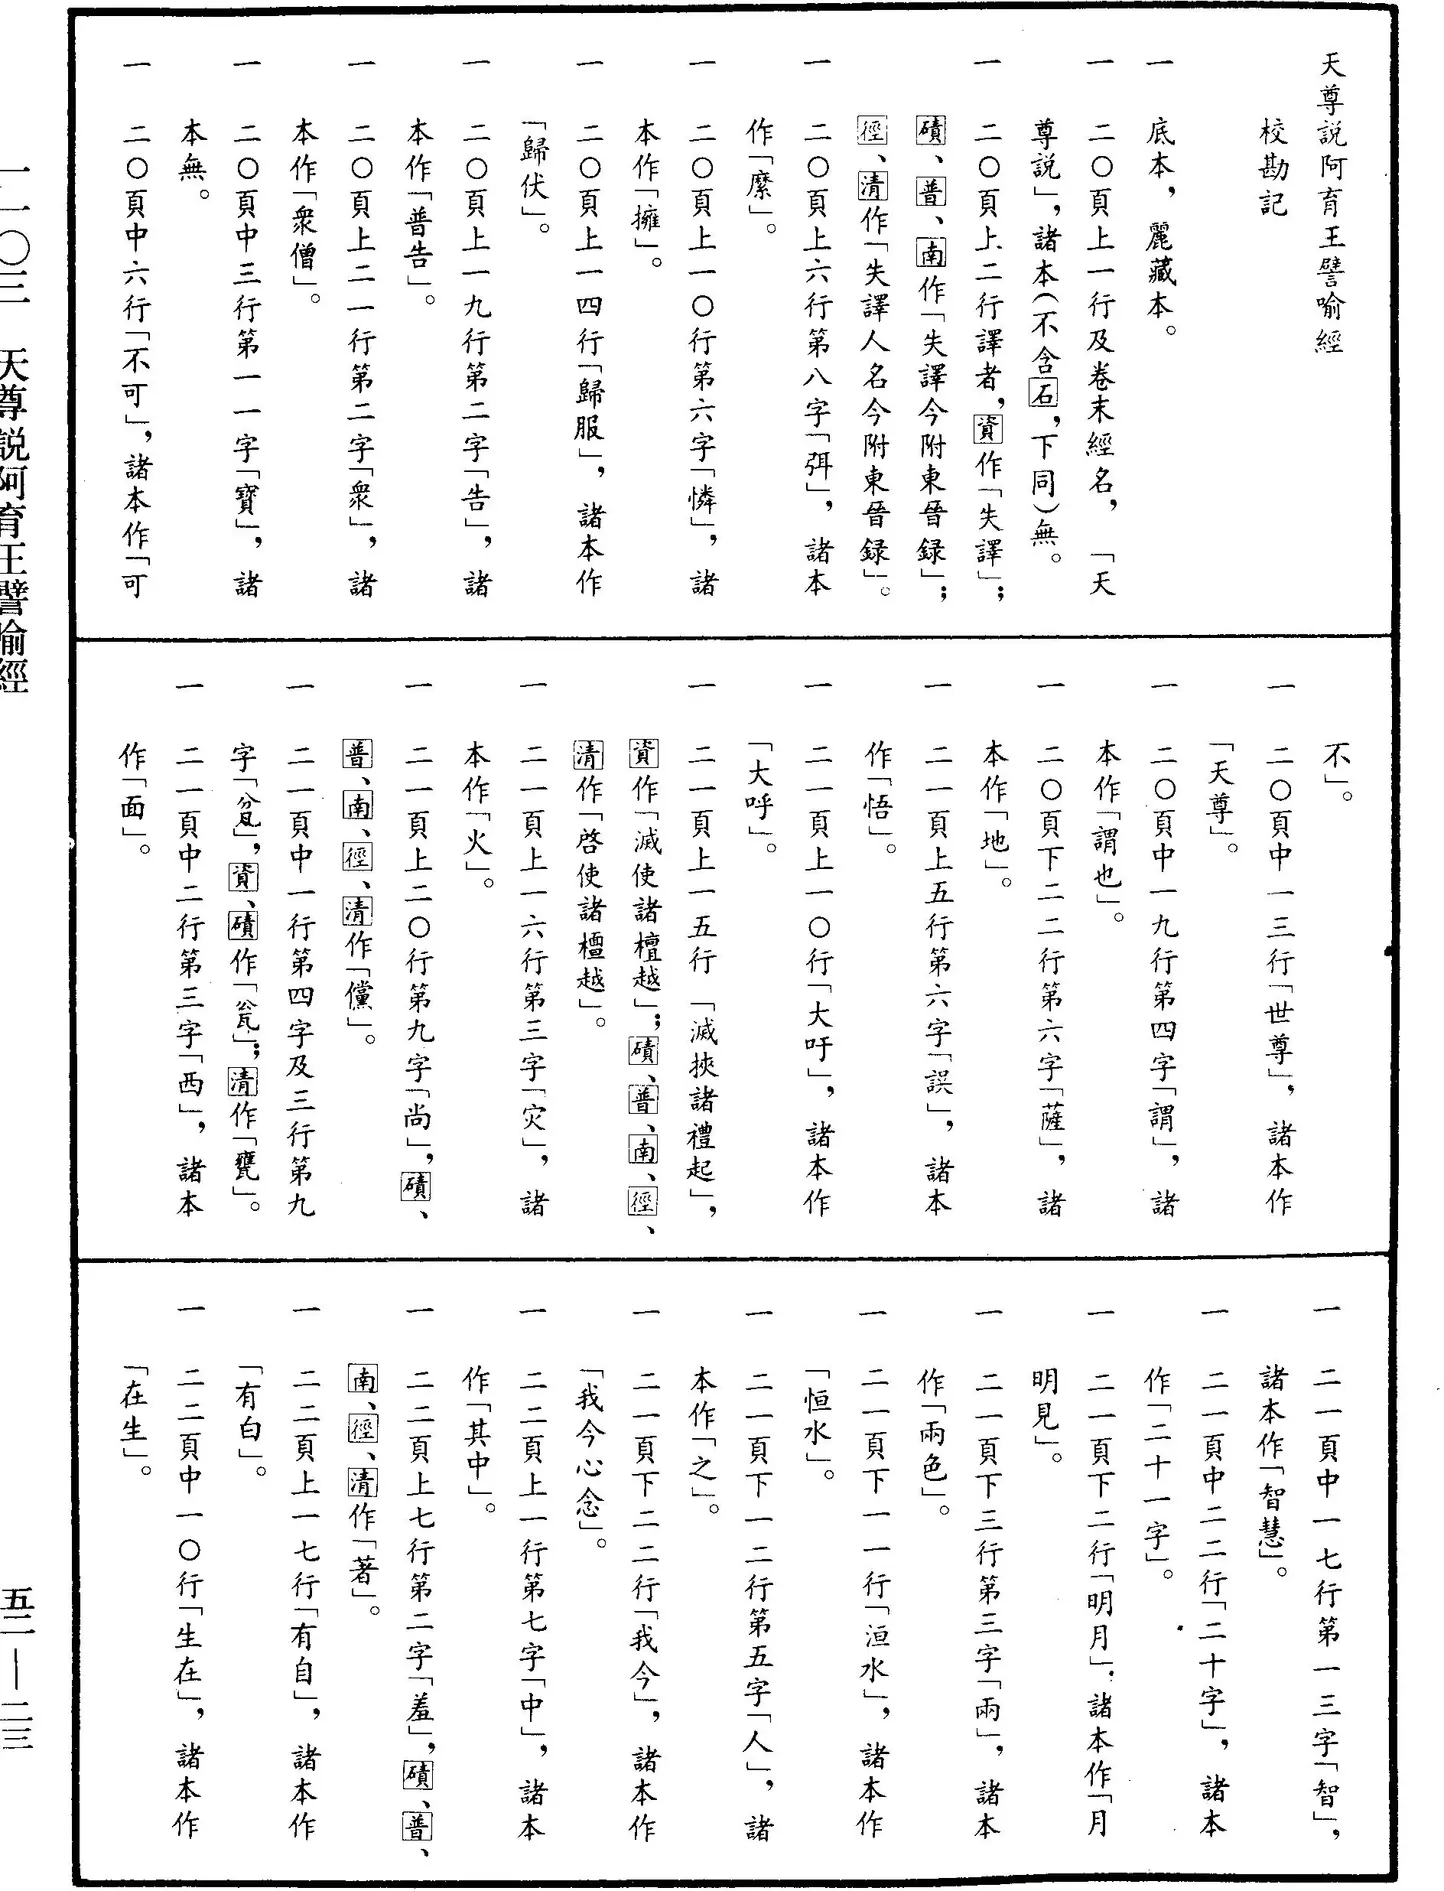 天尊説阿育王譬喻經
校勘記
一 底本，麗藏本。
一 二〇頁上一行及卷末經名，「天
尊説」，諸本（不含石，下同）無。
一 二〇頁上二行譯者，資作「失譯」；
磧、普、南作「失譯今附東晉録」；
徑、清作「失譯人名今附東晉録」。
一 二〇頁上六行第八字「弭」，諸本
作「縻」。
一 二〇頁上一〇行第六字「憐」，諸
本作「擁」。
一 二〇頁上一四行「歸服」，諸本作
「歸伏」。
一 二〇頁上一九行第二字「告」，諸
本作「普告」。
一 二〇頁上二一行第二字「衆」，諸
本作「衆僧」。
一 二〇頁中三行第一一字「寶」，諸
本無。
一 二〇頁中六行「不可」，諸本作「可
不」。
一 二〇頁中一三行「世尊」，諸本作
「天尊」。
一 二〇頁中一九行第四字「謂」，諸
本作「謂也」。
一 二〇頁下二二行第六字「薩」，諸
本作「地」。
一 二一頁上五行第六字「誤」，諸本
作「悟」。
一 二一頁上一〇行「大吁」，諸本作
「大呼」。
一 二一頁上一五行「滅挾諸禮起」，
資作「滅使諸檀越」；磧、普、南、徑、
清作「啓使諸檀越」。
一 二一頁上一六行第三字「灾」，諸
本作「火」。
一 二一頁上二〇行第九字「尚」，磧、
普、南、徑、清作「儻」。
一 二一頁中一行第四字及三行第九
字「瓮」，資、磧作「瓮」；清作「甕」。
一 二一頁中二行第三字「西」，諸本
作「面」。
一 二一頁中一七行第一三字「智」，
諸本作「智慧」。
一 二一頁中二二行「二十字」，諸本
作「二十一字」。
一 二一頁下二行「明月」，諸本作「月
明見」。
一 二一頁下三行第三字「兩」，諸本
作「兩色」。
一 二一頁下一一行「洹水」，諸本作
「恒水」。
一 二一頁下一二行第五字「人」，諸
本作「之」。
一 二一頁下二二行「我今」，諸本作
「我今心念」。
一 二二頁上一行第七字「中」，諸本
作「其中」。
一 二二頁上七行第二字「羞」，磧、普、
南、徑、清作「著」。
一 二二頁上一七行「有自」，諸本作
「有白」。
一 二二頁中一〇行「生在」，諸本作
「在生」。
一一〇三 天尊説阿育王譬喻經
五二—二三